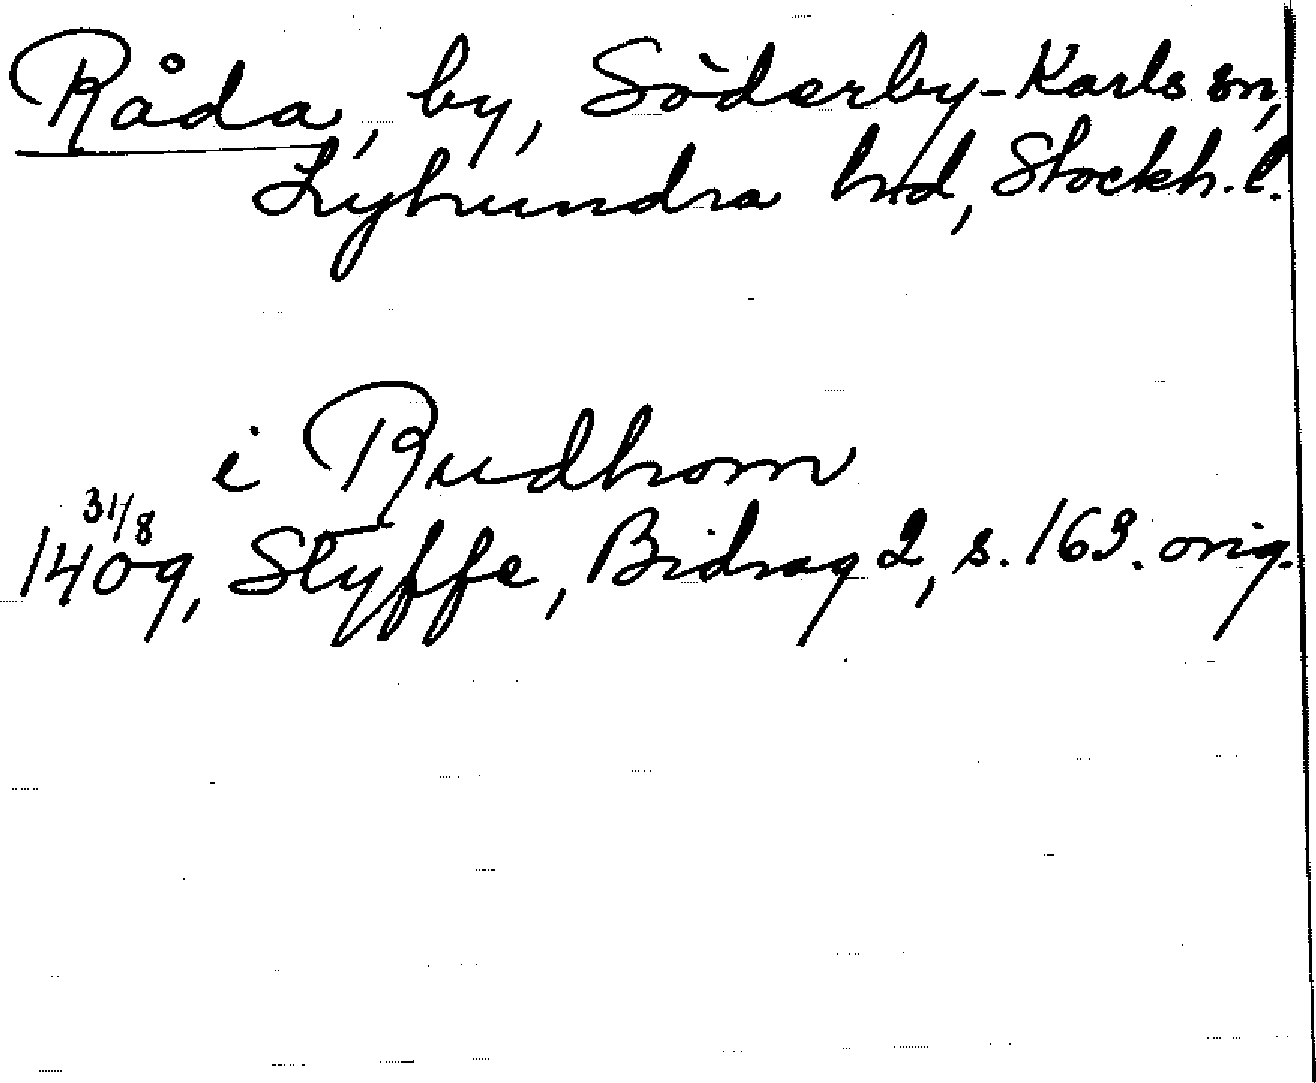 Råda, by, Söderby-Karls sn,
Lyhundra hd, Stockh. l.
i Rudhom
31/8
1409, Styffe, Bidrag 2, s. 163. orig.